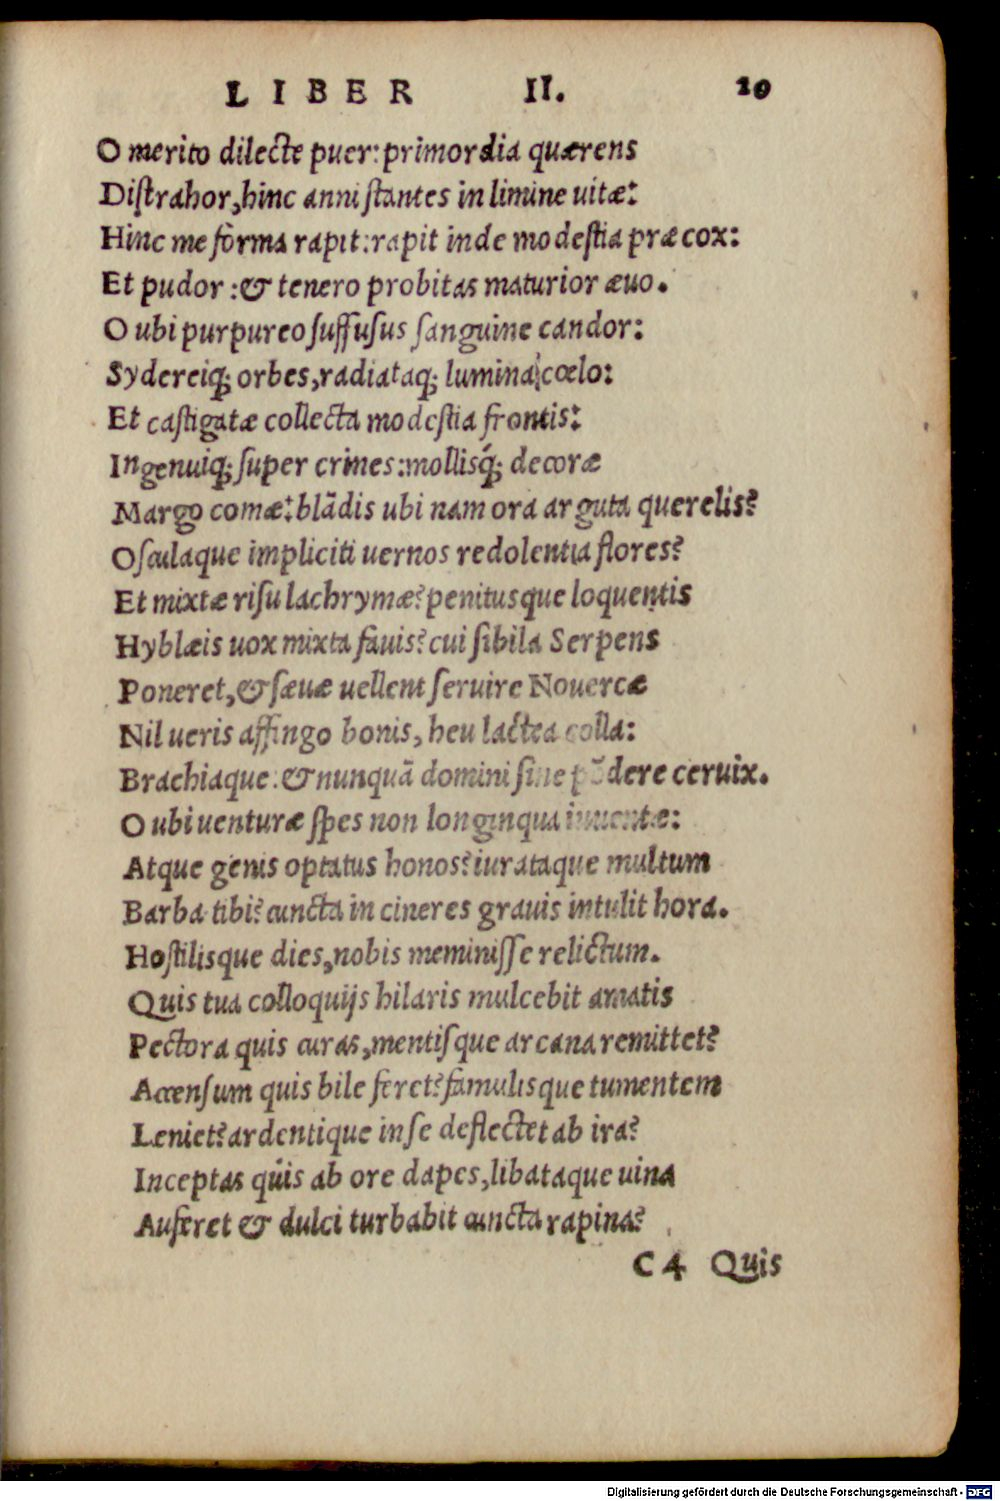 LIBER II. 20
O merito dilecte puer: primordia quærens
Distrahor, hinc anni stantes in limine uitæ:
Hinc me forma rapit: rapit inde modestia præcox:
Et pudor: & tenero probitas maturior æuo.
O ubi purpureo suffusus sanguine candor:
Sydereiq; orbes, radiataq; lumina cœlo:
Et castigatæ collecta modestia frontis:
Ingenuiq; super crines: mollisq́; decoræ
Margo comæ: blãdis ubi nam ora arguta querelis?
Osculaque impliciti uernos redolentia flores?
Et mixtæ risu lachrymæ? penitusque loquentis
Hyblæis uox mixta fauis? cui sibila Serpens
Poneret, & sæuæ uellent seruire Nouercæ
Nil ueris affingo bonis, heu lactea colla:
Brachiaque: & nunquã domini sine põdere ceruix.
O ubi uenturæ spes non longinqua iuuentæ:
Atque genis optatus honos? iurataque multum
Barba tibi? cuncta in cineres grauis intulit hora.
Hostilisque dies, nobis meminisse relictum.
Quis tua colloquijs hilaris mulcebit amatis
Pectora quis curas, mentisque arcana remittet?
Accensum quis bile feret? famulisque tumentem
Leniet? ardentique in se deflectet ab ira?
Inceptas quis ab ore dapes, libataque uina
Auferet & dulci turbabit cuncta rapina?
C 4 Quis
Digitalisierung gefördert durch die Deutsche Forschungsgemeinschaft - DFG